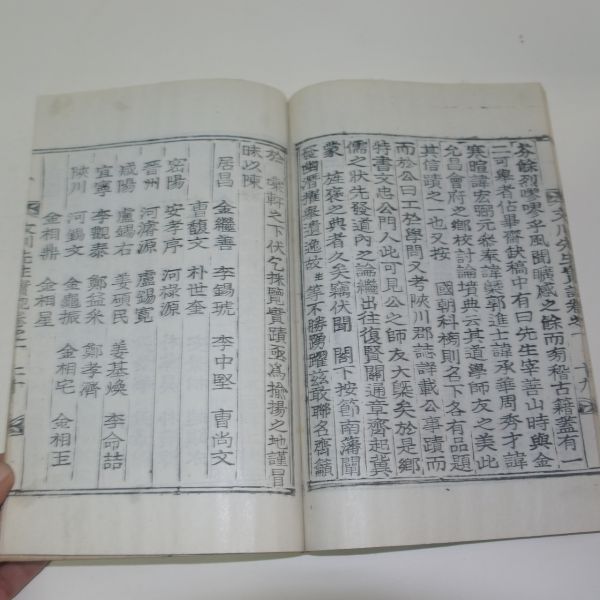 芬餘烈嘐嘐乎風聞曠感之餘而芴稽古籍蓋有一
二可畢者佔畢齋鈌稿中有曰先生宰善山時與金
寒暄諱宏弼元槩奉諱欒郭進士諱承華周秀才諱
允昌會府之鄉校討論墳典云其道學師友之美此
其信蹟之一也又按 國朝科榜則名下各有品題
而於公曰工於學問又考陜川郡誌詳載公事蹟而
特書文忠公門人此可見公之師友大槩矣於是鄉
儒之狀先發道內之論繼出往復賢關通章齊起冀
蒙 旌褒之典者久矣竊伏聞 閤下按節南藩闡
發幽潛權舉遺逸故 生等不勝踴躍玆敢聯名齊籲
文川先生實記卷之一 十九
於 棠軒之下伏乞採覽實蹟亟爲揄揚之地謹冒
昧以陳
居昌 金繼善 李錫琥 李中堅 曺尚文
曺馥文 朴世奎
密陽 安孝序 河祿源
晉州 河濬源 盧錫寬
咸陽 盧錫右 姜碩民 姜基煥 李命喆
宜寧 李觀泰 鄭益采 鄭孝濟
陜川 河錫文 金龜振 金相宅 金相玉
金相鼎 金相星
文川先生實記卷之一 二十